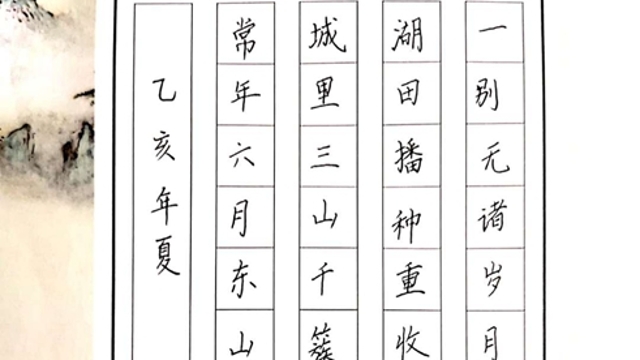 一别无诸岁月
湖田播种重收
城里三山千簇
常年六月东山
乙亥年夏